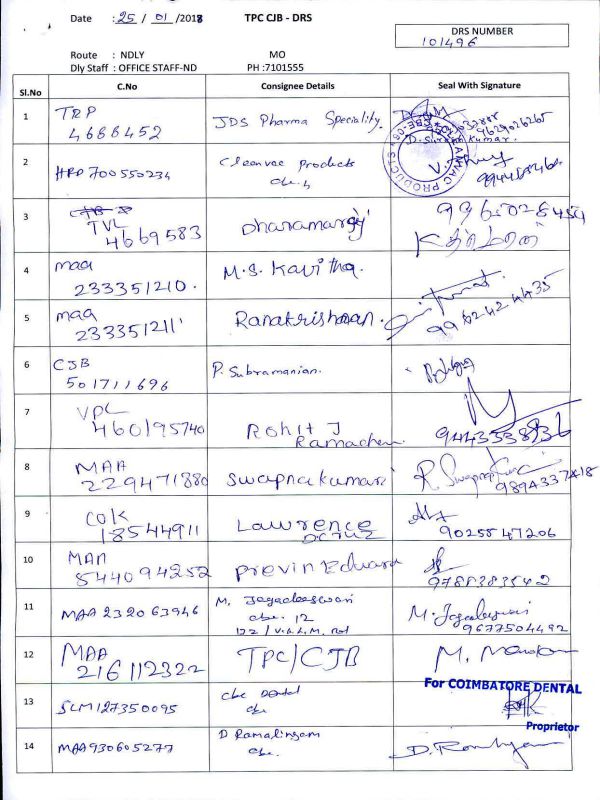 Date : 25 / 01 /2018 TPC CJB - DRS
DRS NUMBER
101496
Route : NDLY MO
Dly Staff : OFFICE STAFF-ND PH :7101555
Sl.No C.No Consignee Details Seal With Signature
1 TRP
4688452 JDS Pharma Speciality.
9629026265
D. Suresh Kumar.
2 HRD 700550234 Cleanvac Products
cbe.
3 TVL
4669583 Dharamaraj
4 maa
233351210. M.S. Kavitha.
5 maa
233351211 Ramakrishnan.
9962424435
6 CJB
501711696 P. Subramanian.
7 VPL
460195740 Rohit J
Ramachen
9443553836
8 MAA
229471880 Swapnakumari R Swapnakumari
9894337418
9 COK
18544911 Lawrence
9025547206
10 MAA
544094252 Previn Edward
9788383542
11 MAA 232063946 M. Jagadeeswari
cbe. 12
M. Jagadeeswari
9677504492
12 MAA
216112322 TPC/CJB
For COIMBATORE DENTAL
Proprietor
13 SLM127350095 cbe Dental
cbe
14 MAA930605277 D Ramalingam
cbe.